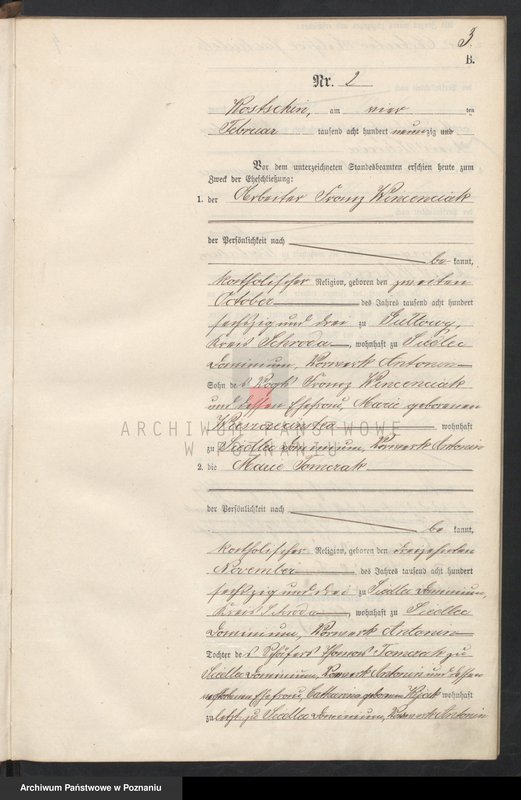 3.
B.
Nr. 2
Kostschin, am vier ten
Februar tausend acht hundert neunzig und
Vor dem unterzeichneten Standesbeamten erschien heute zum
Zweck der Eheschließung:
1. der Arbeiter Franz Wincenciak
der Persönlichkeit nach
be kannt,
katholischer Religion, geboren den zweiten
October des Jahres tausend acht hundert
sechszig und drei zu Gultowy,
Kreis Schroda, wohnhaft zu Siedlec
Dominium, Vorwerk Antonin
Sohn des Vogts Franz Wincenciak
und dessen Ehefrau, Marie geborenen
wohnhaft
zu Siedlec Dominium, Vorwerk Antonin
2. die Marie Tomczak
der Persönlichkeit nach
be kannt,
katholischer Religion, geboren den dreizehnten
November des Jahres tausend acht hundert
sechszig und drei zu Siedlec Dominium,
Kreis Schroda, wohnhaft zu Siedlec
Dominium, Vorwerk Antonin
Tochter des Schäfers Thomas Tomczak zu
Siedlec Dominium, Vorwerk Antonin und dessen
verstorbenen Ehefrau, Catharina geborenen wohnhaft
zu letzt zu Siedlec Dominium, Vorwerk Antonin
ARCHIWUM PAŃSTWOWE
W POZNANIU
Archiwum Państwowe w Poznaniu